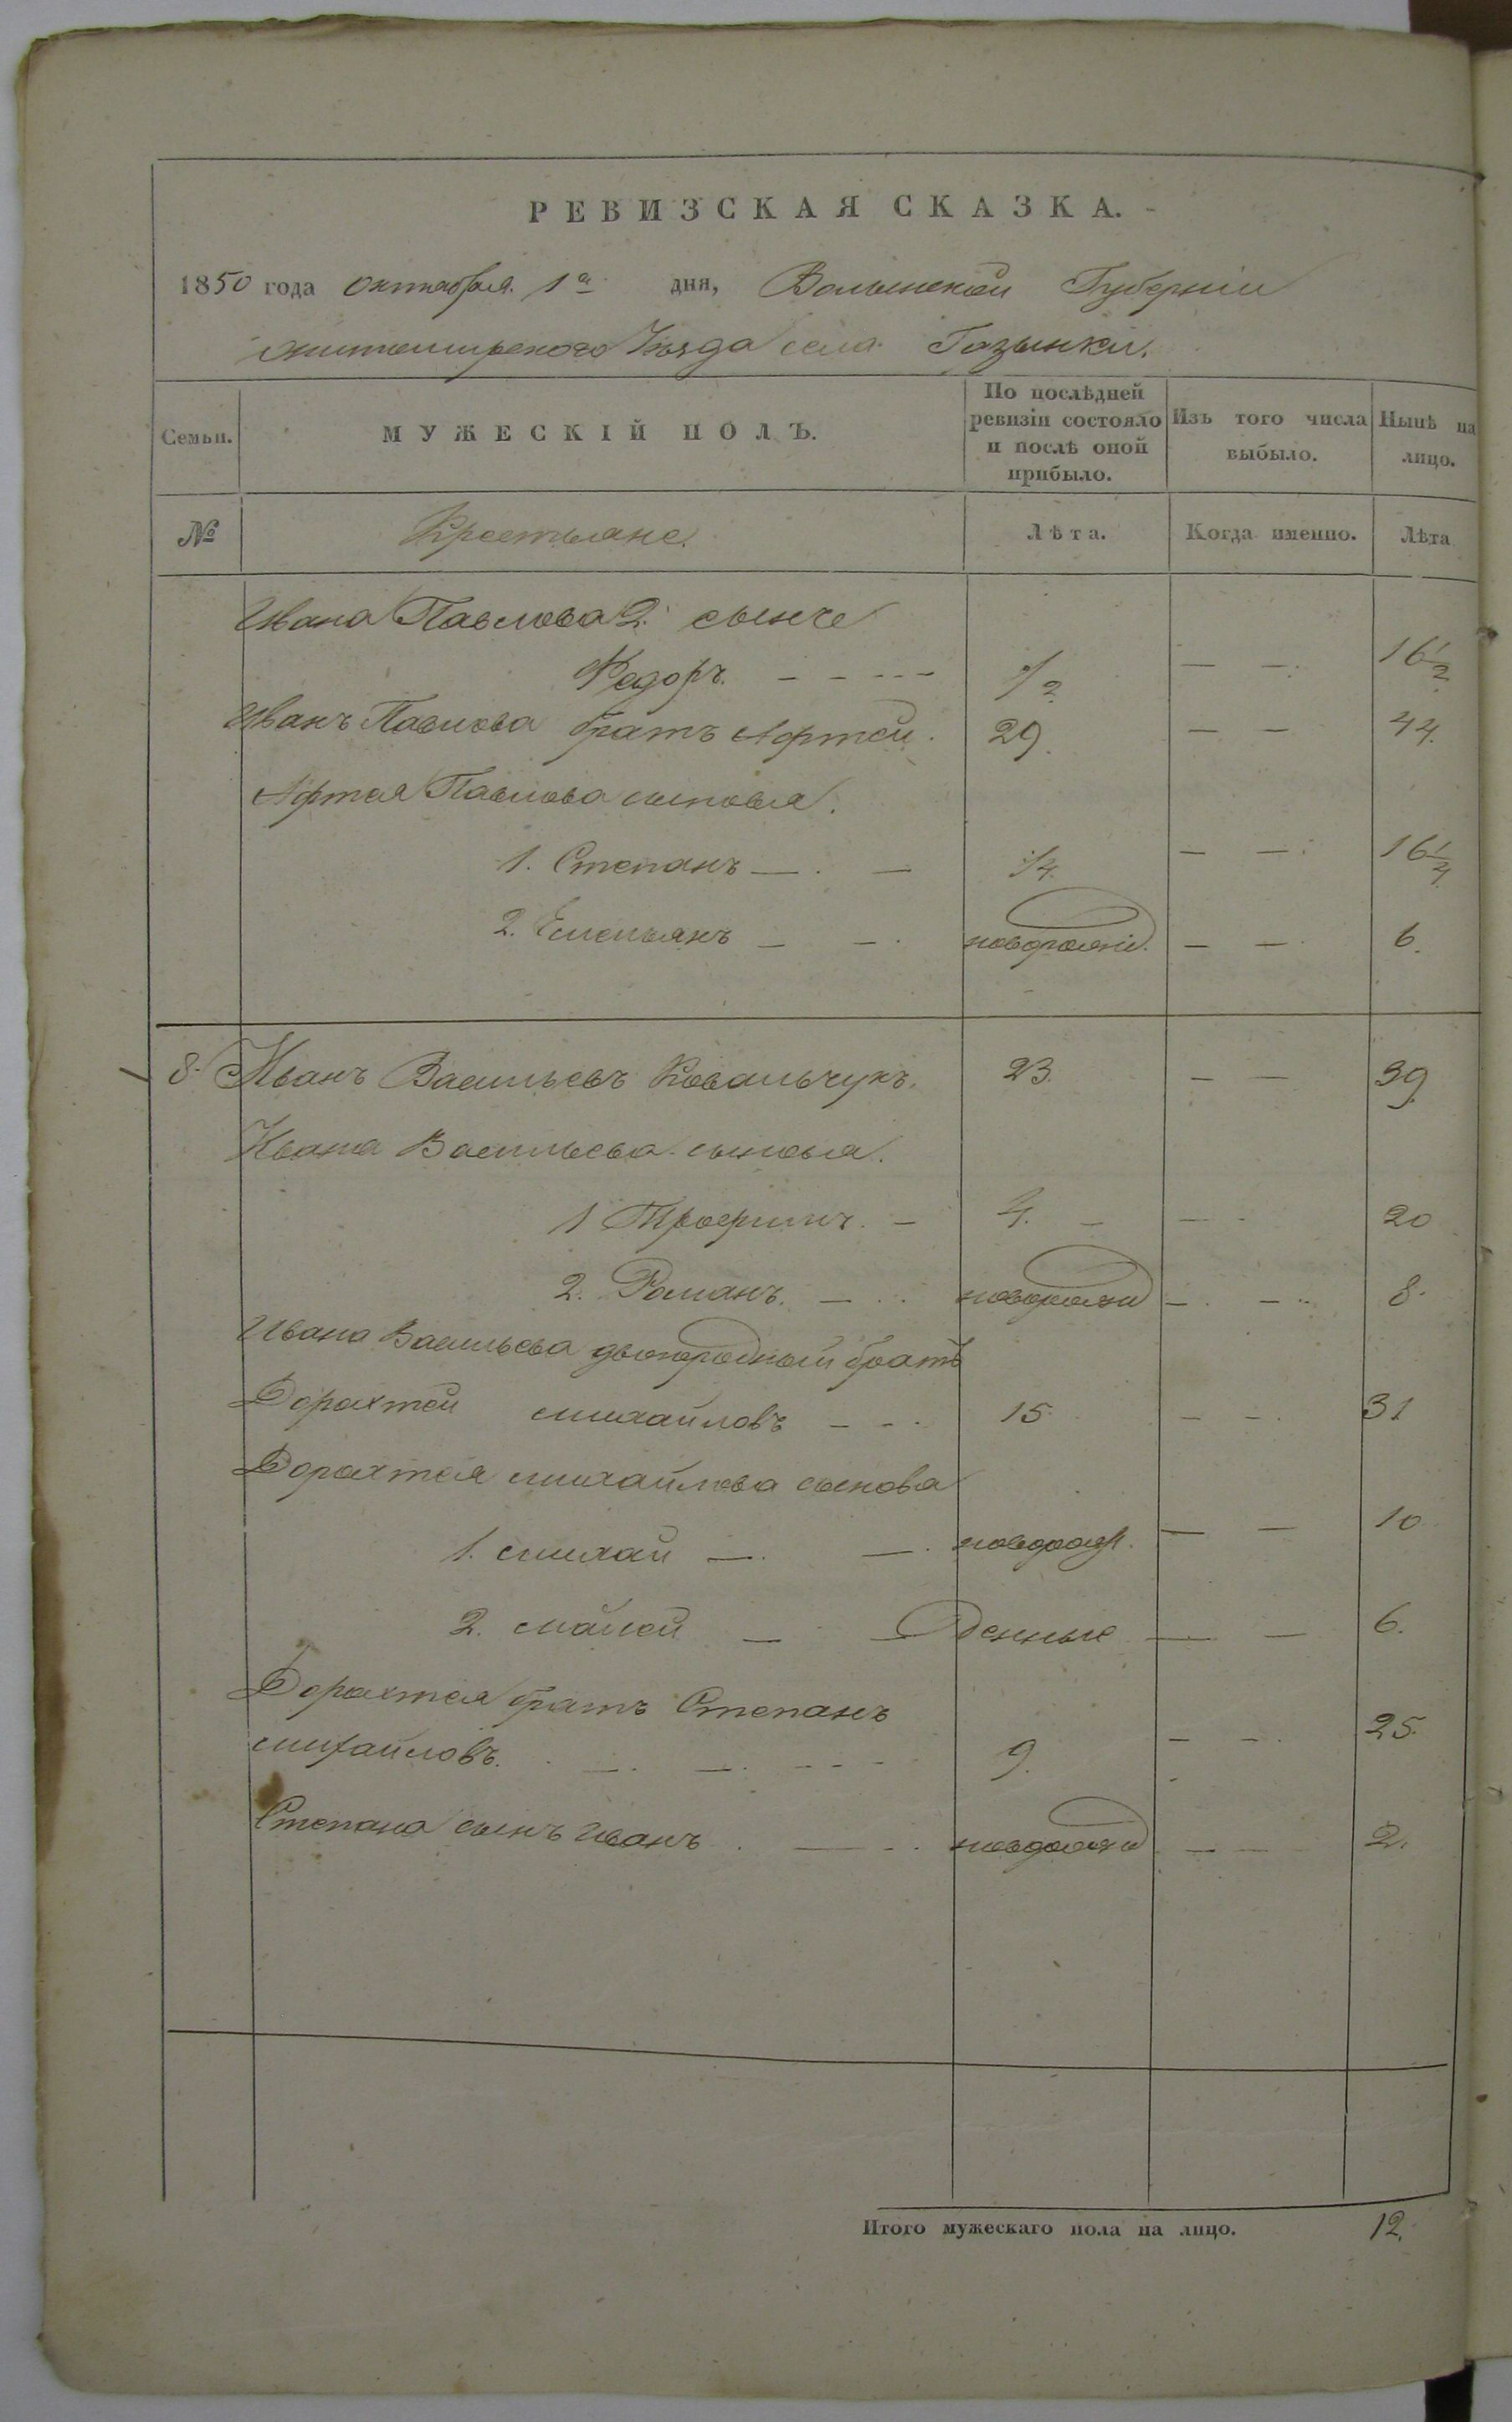 РЕВИЗСКАЯ СКАЗКА.
1850 года октября 1го дня, Волынской Губернии
Житомирского Уезда села Газынки.
Семьи. МУЖЕСКІЙ ПОЛЪ. По послѣдней ревизіи состояло и послѣ оной прибыло. Изъ того числа выбыло. Нынѣ на лицо.
№ Крестьяне. Лѣта. Когда именно. Лѣта
Ивана Павлова 2. сынъ
Федоръ. 1/2 16 1/2
Иванъ Павлова братъ Афтей. 29. 44.
Афтея Павлова сыновья.
1. Степанъ 1/4. 16 1/4
2. Емельянъ 6.
8. Иванъ Васильевъ Ковальчукъ. 23. 39.
Ивана Васильева сыновья.
1 Трофимъ. 4. 20
2. Романъ. 8.
Ивана Васильева двоюродный братъ
Дорахтей михайловъ 15 31
Дорахтея михайлова сынова
1. михай новорож. 10
2. денные 6.
Дорахтея братъ Степанъ
михайловъ. 9. 25.
Степана сынъ Иванъ 2.
Итого мужескаго пола на лицо. 12.